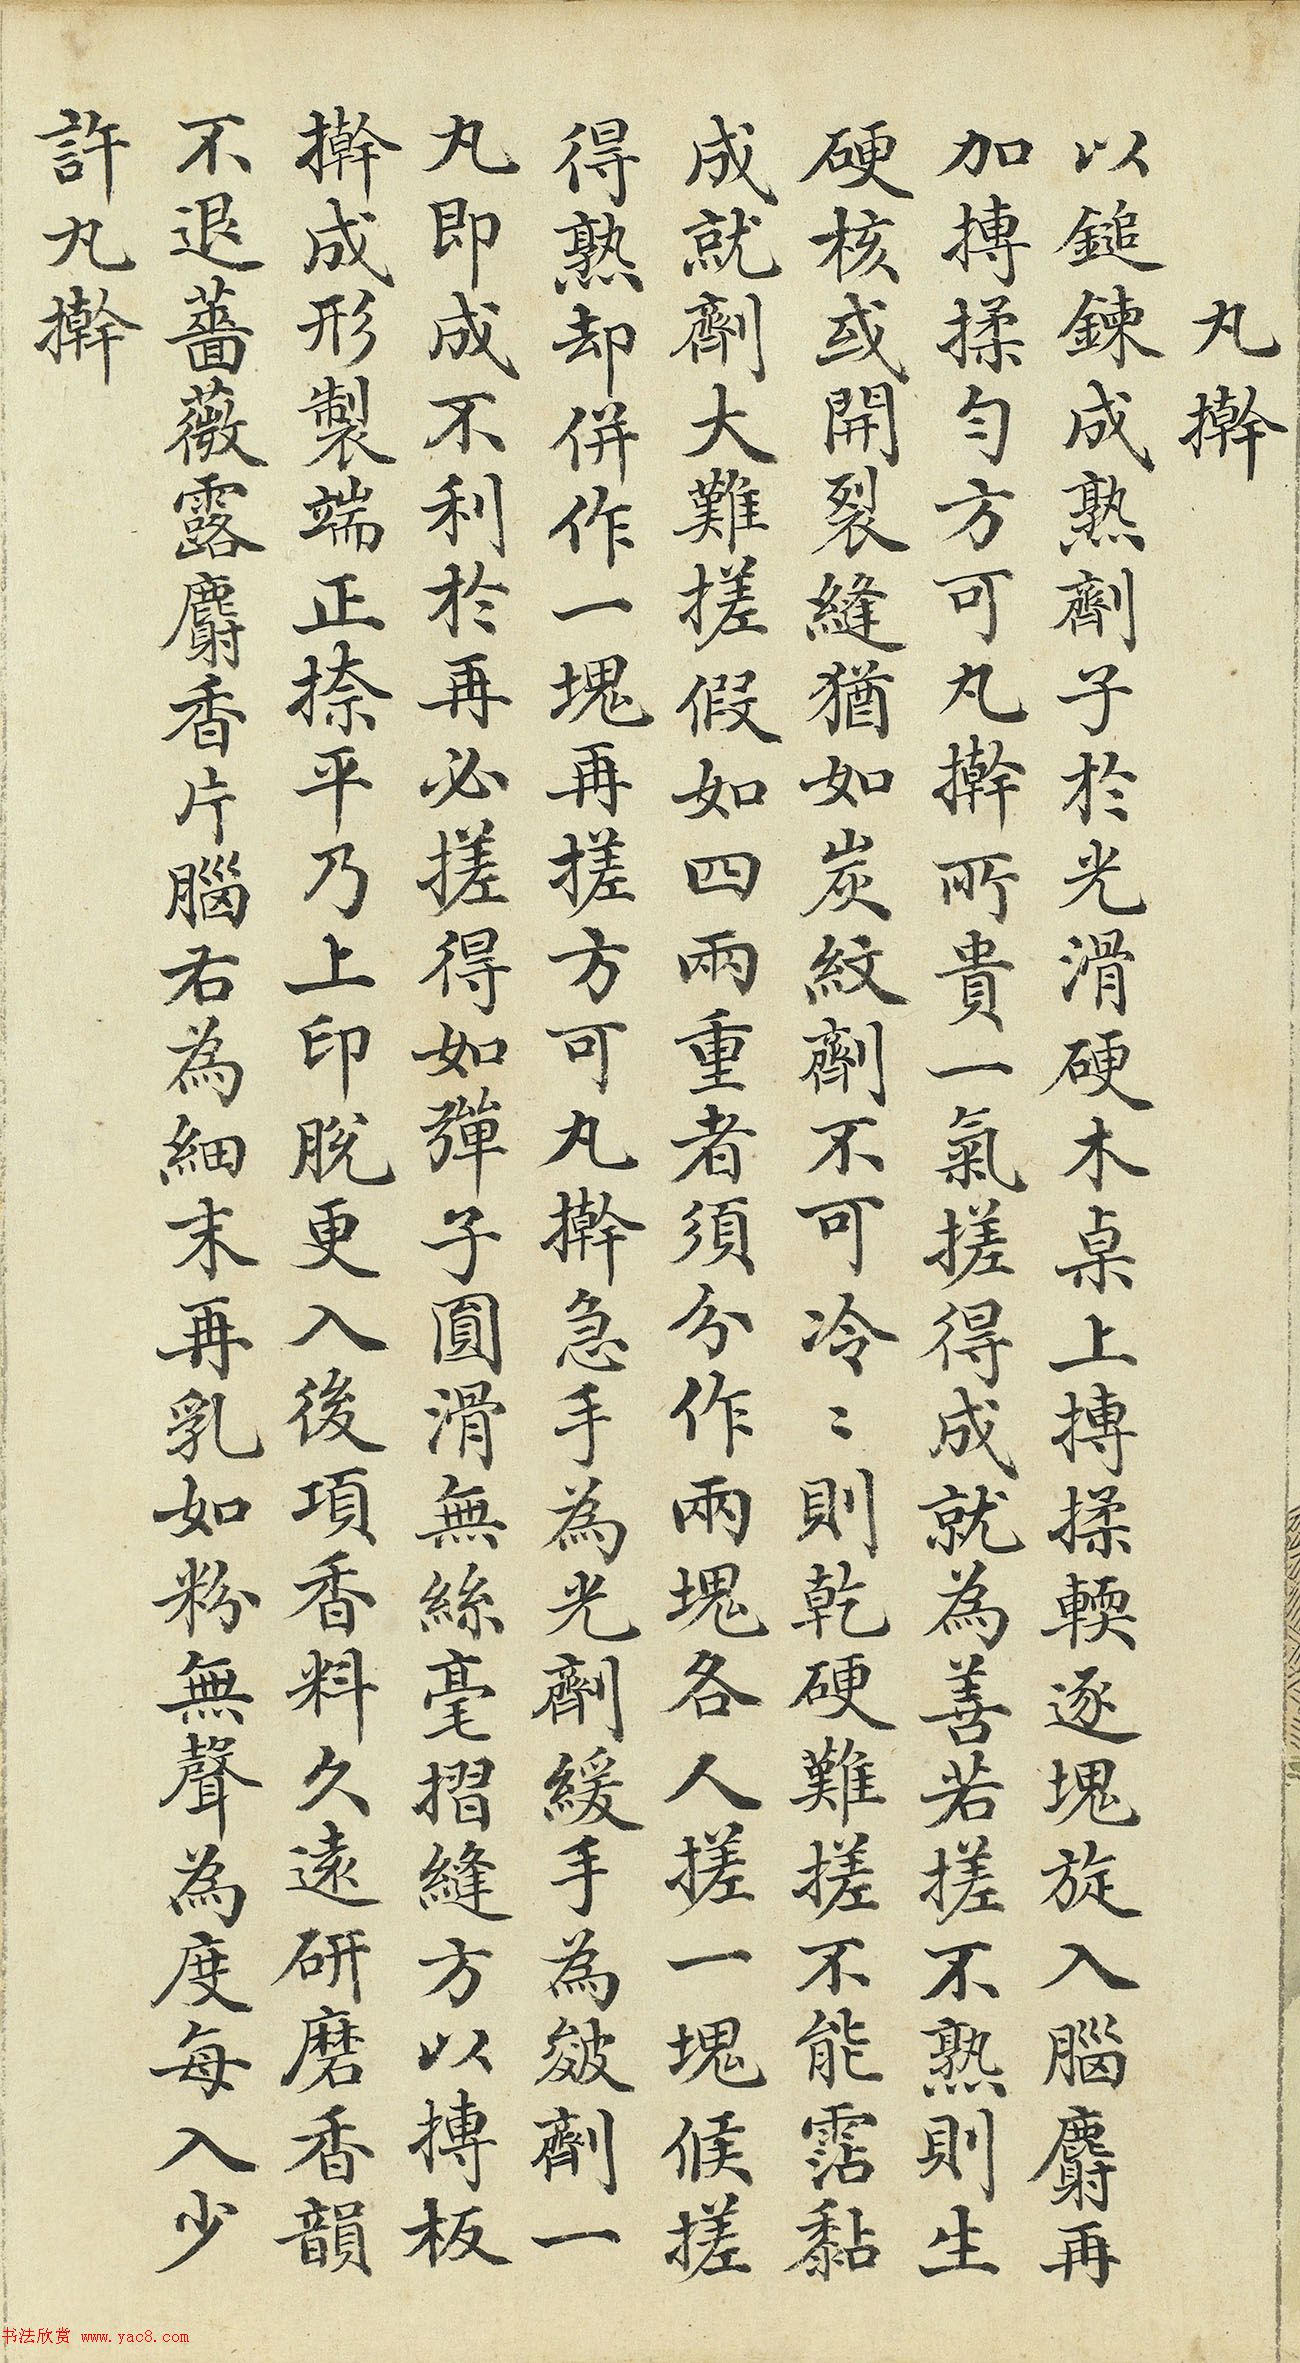 丸擀
以鎚鍊成熟劑子於光滑硬木桌上摶揉輭逐塊旋入腦麝再
加摶揉勻方可丸擀所貴一氣搓得成就為善若搓不熟則生
硬核或開裂縫猶如炭紋劑不可冷〻則乾硬難搓不能霑黏
成就劑大難搓假如四兩重者須分作兩塊各人搓一塊候搓
得熟却併作一塊再搓方可丸擀急手為光劑緩手為皴劑一
丸即成不利於再必搓得如彈子圓滑無絲毫摺縫方以摶板
擀成形製端正捺平乃上印脫更入後項香料久遠研磨香韻
不退薔薇露麝香片腦右為細末再乳如粉無聲為度每入少
許丸擀
书法欣赏 www.yac8.com